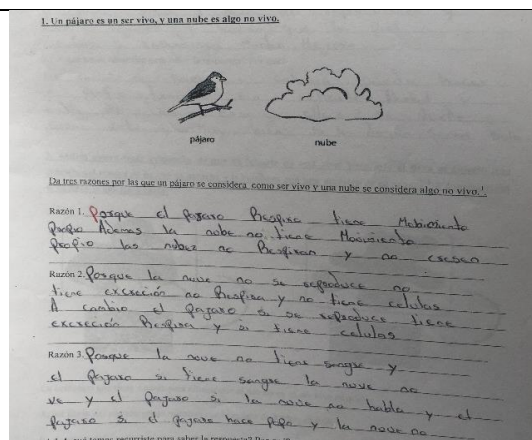 1. Un pájaro es un ser vivo, y una nube es algo no vivo.
pájaro
nube
Da tres razones por las que un pájaro se considera, como ser vivo y una nube se considera algo no vivo.
Razón 1. Porque el pajaro Respira tiene Mobimiento
propio Ademas la nobe no tiene Movimiento
propio las nobes no Respiran y no cresen
Razón 2. Porque la nuve no se reproduce no
tiene excreción no Respira y no tiene celulas
A cambio el pajaro si se reproduce tiene
excreción Respira y si tiene celulas
Razón 3. Porque la nove no tiene sangre y
el pajaro si tiene sangre la nuve no
ve y el pajaro si la nuve no habla y el
pajaro si el pajaro hace popo y la nuve no